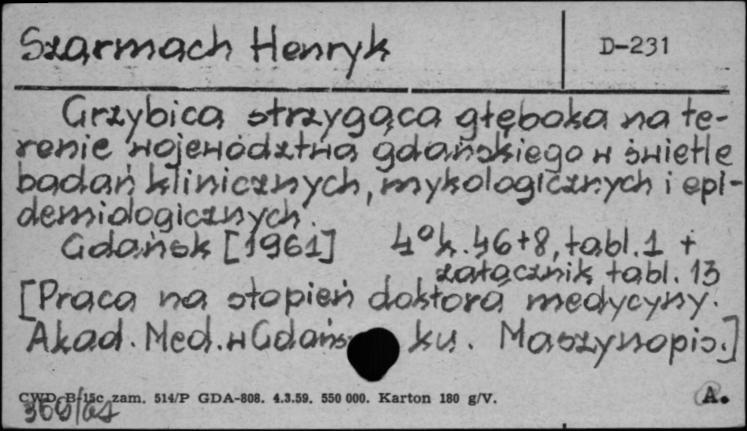 Szarmach Henryk
D-231
Grzybica strzygąca głęboka na te-
renie województwa gdańskiego w świetle
badań klinicznych, mykologicznych i epi-
demiologicznych.
Gdańsk [1961] 4° k. 46+8, tabl. 1 +
załącznik tabl. 13
[Praca na stopień doktora medycyny.
Akad. Med. w Gdańsku. Maszynopis.]
CWD, B-15c zam. 514/P GDA-808. 4.3.59. 550 000. Karton 180 g/V.
A.